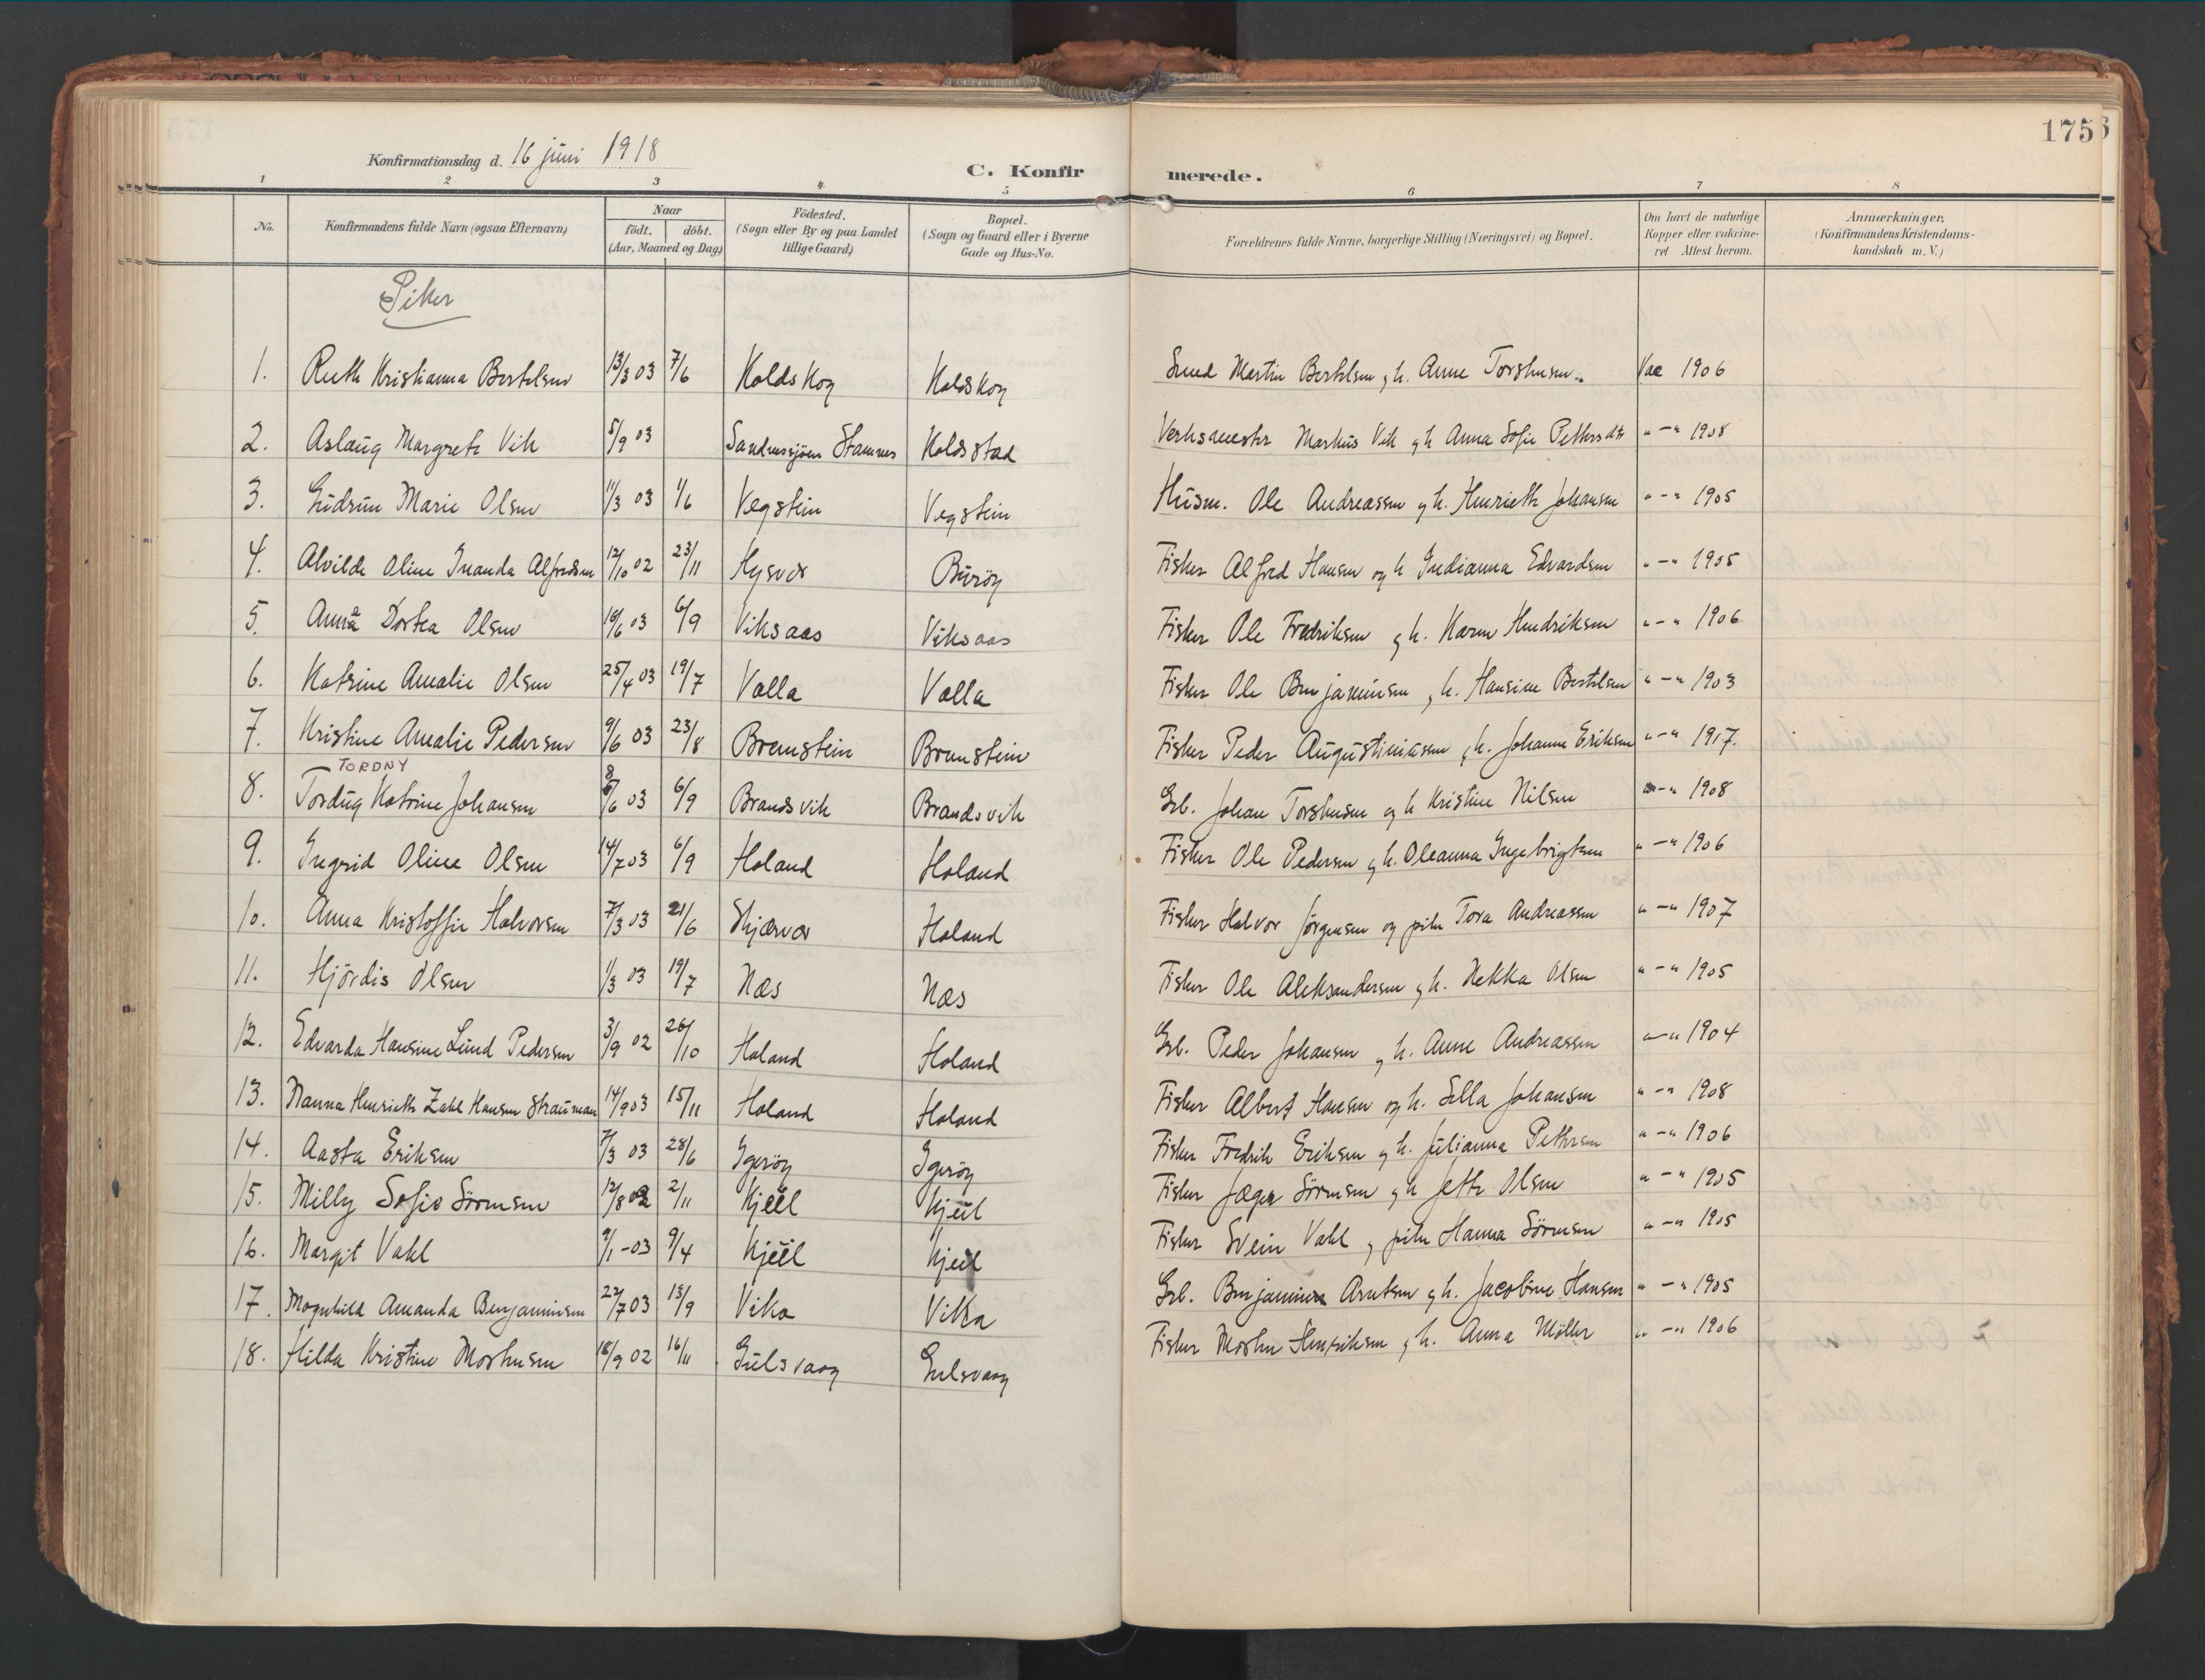 175
Konfirmationsdag d. 16 juni 1918
C. Konfirmerede.
1 2 3 4 5 6 7 8
No. Konfirmandens fulde Navn (ogsaa Efternavn) Naar födt. döbt. (Aar, Maaned og Dag) Födested. (Sogn eller By og paa Landet tillige Gaard) Bopæl. (Sogn og Gaard eller i Byerne Gade og Hus-No. Forældrenes fulde Navne, borgerlige Stilling (Næringsvei) og Bopæl. Om havt de naturlige Kopper eller vaccineret Attest herom. Anmærkninger, (Konfirmandens Kristendomskundskab m. V.)
Piker
1. Ruth Kristianna Bertelsen 13/3 03 7/6 Koldskog Koldskog Smed Martin Bertelsen og h. Anne Torstensen Vac 1906
2. Aslaug Margrete Vik 5/9 03 Sandnessjöen Stamnes Koldsstad Verksmester Markus Vik og h Anna Sofie Pettersdtr " - " 1908
3. Gudrun Marie Olsen 11/3 03 1/6 Vegstein Vegstein Husm. Ole Andreassen og h. Henriette Johansen " - " 1905
4. Alvilde Oline Inanda Alfredsen 12/10 02 23/11 Hysvær Buröy Fisker Alfred Hansen og h Indianna Edvardsen " - " 1905
5. Anna Dortea Olsen 16/6 03 6/9 Viksaas Viksaas Fisker Ole Fredriksen og h. Karen Hendriksen " - " 1906
6. Katrine Amalie Olsen 25/4 03 19/7 Valla Valla Fisker Ole Benjaminsen og h. Hansine Bertelsen " - " 1903
7. Kristine Amalie Pedersen 9/6 03 23/8 Bremstein Bremstein Fisker Peder Augustiniussen og h. Johanne Eriksen " - " 1917.
TORDNY
8. Tordug Katrine Johansen 8/6 03 6/9 Brandsvik Brandsvik Grb. Johan Torstensen og h Kristine Nilsen " - " 1908
9. Ingrid Oline Olsen 14/7 03 6/9 Holand Holand Fisker Ole Pedersen og h. Oleanna Ingebrigtsen " - " 1906
10. Anna Kristoffie Halvorsen 7/3 03 21/6 Skjærvær Holand Fisker Halvor Jörgensen og pike Tora Andreassen " - " 1907
11. Hjördis Olsen 1/3 03 19/7 Næs Næs Fisker Ole Aleksandersen og h. Hekka Olsen " - " 1905
12. Edvarda Hansine Lund Pedersen 3/9 02 26/10 Holand Holand Grb. Peder Johansen og h. Anne Andreassen " - " 1904
13. Nanna Henriette Zahl Hansen Strauman 14/9 03 15/11 Holand Holand Fisker Albert Hansen og h. Sella Johansen " - " 1908
14. Aasta Eriksen 7/3 03 28/6 Igeröy Igeröy Fisker Fredrik Eriksen og h. Julianna Pettersen " - " 1906
15. Milly Sofie Sörensen 12/8 02 2/11 Kjeel Kjeil Fisker Jæger Sörensen og h Jette Olsen " - " 1905
16. Margit Vahl 9/1 - 03 9/4 Kjeel Kjeil Fisker Svein Vahl og pike Hanna Sörensen " - " 1905
17. Magnhild Amanda Benjaminsen 22/7 03 13/9 Vika Vika Grb. Benjamin Arntsen og h. Jacobine Hansen " - " 1905
18. Hilda Kristine Mortensen 18/9 02 16/11 Gulsvaag Gulsvaag Fisker Morten Henriksen og h. Anna Möller " - " 1906